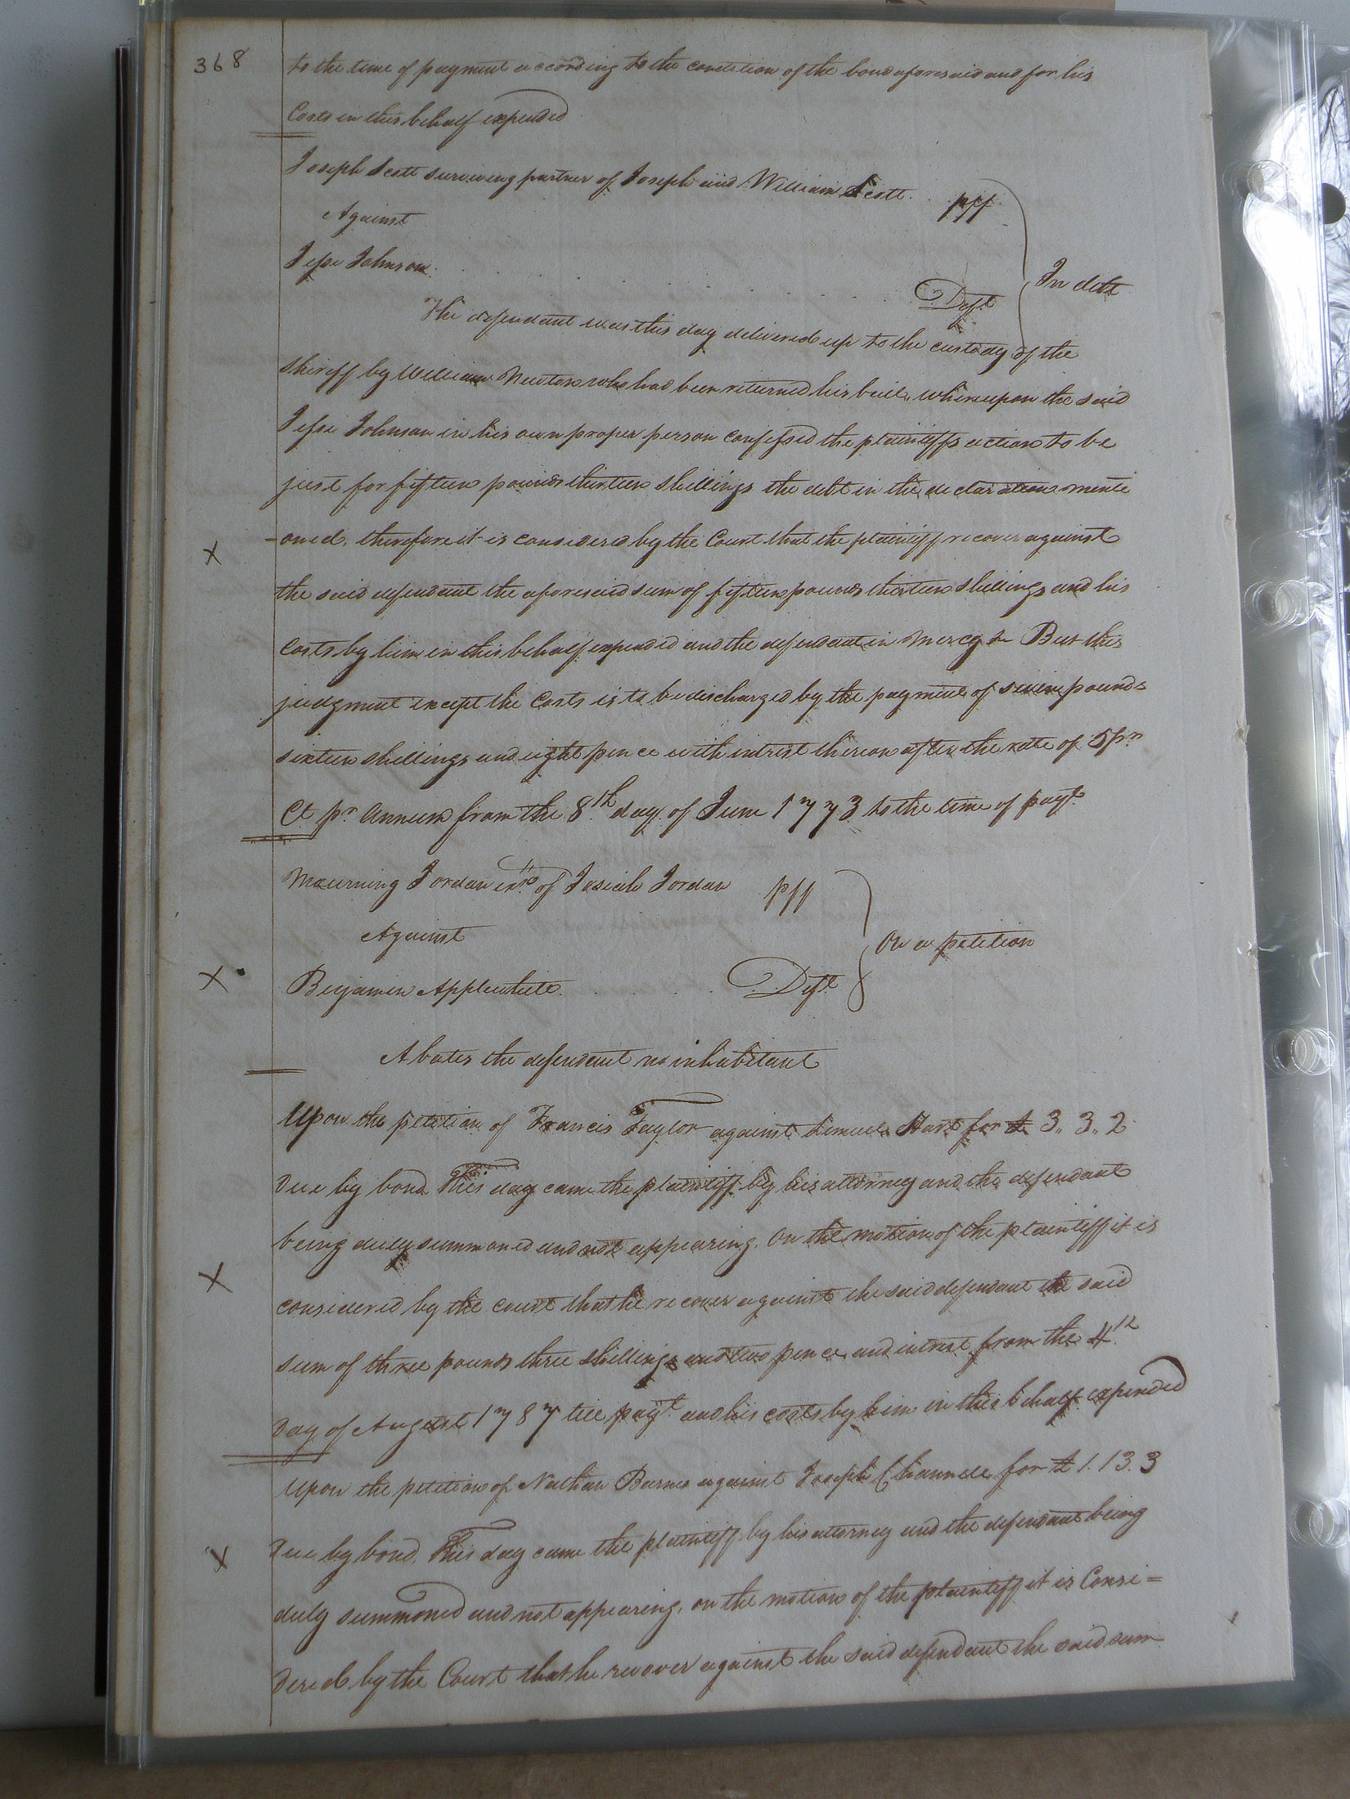 368
to the time of payment according to the condition of the bond aforesaid and for his
Costs in this behalf expended
Joseph Scott surviving partner of Joseph and William Scott. plff
Against
Jesse Johnson. Deft
In debt
The defendant was this day delivered up to the custody of the
sheriff by William Newton who had been returned his bail, whereupon the said
Jesse Johnson in his own proper person confessed the plaintiffs action to be
just for fifteen pounds thirteen shillings the debt in the declaration menti
-oned, therefore it is considered by the Court that the plaintiff recover against
the said defendant the aforesaid sum of fifteen pounds thirteen shillings and his
Costs by him in this behalf expended and the defendant in Mercy &c But this
judgment except the Costs is to be discharged by the payment of seven pounds
sixteen shillings and eight pence with intrest thereon after the rate of 5 pr
Ct pr Annum from the 8th day of June 1773 to the time of payt
Mourning Jordan exrx of Josiah Jordan plff
Against
On a petition
Benjamin Applewhite Deft
Abates the defendant no inhabitant
Upon the petition of Francis Taylor against Lemuel Hart for £ 3.. 3.. 2
due by bond This day came the plaintiff by his attorney and the defendant
being duly summoned and not appearing. On the motion of the plaintiff it is
considered by the court that he recover against the said defendant the said
sum of three pounds three shillings and two pence and intrest from the 4th
day of August 1787 till payt and his costs by him in this behalf expended
Upon the petition of Nathan Barnes against Joseph Channell for £ 1. 13. 3
due by bond. This day came the plaintiff by his attorney and the defendant being
duly summoned and not appearing, on the motion of the plaintiff it is Consi=
dered by the Court that he recover against the said defendant the said sum